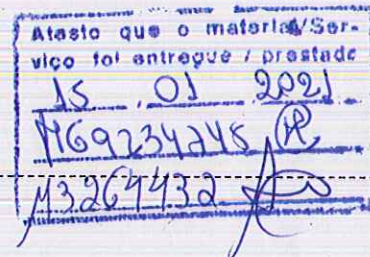 Atesto que o material/Ser-
viço foi entregue / prestado
15 . 01 2021
M69234245 R
M3264432